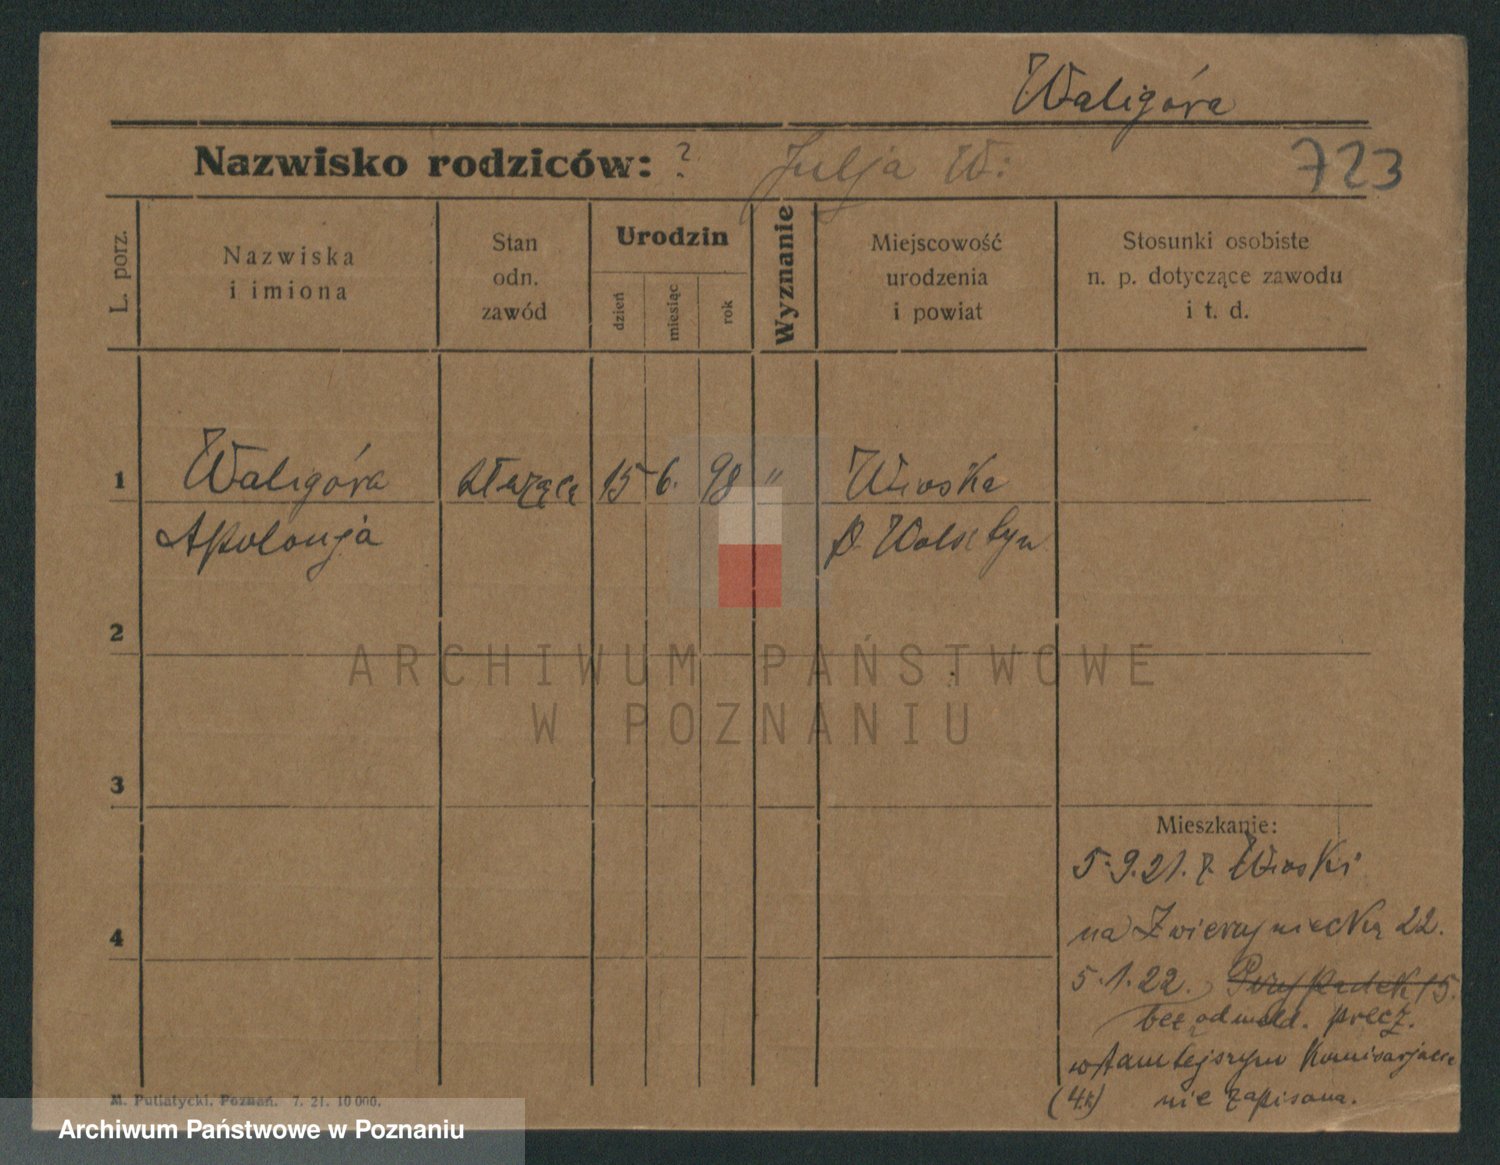 Waligóra
Nazwisko rodziców: ? Julja W: 723
L. porz.
Nazwiska
i imiona
Stan
odn.
zawód
Urodzin
dzień
miesiąc
rok
Wyznanie
Miejscowość
urodzenia
i powiat
Stosunki osobiste
n. p. dotyczące zawodu
i t. d.
1 Waligóra służąca 15 6. 98 " Wioska
Apolonja p. Wolsztyn
2
ARCHIWUM PAŃSTWOWE
W POZNANIU
3
Mieszkanie:
5.9.21. z Wioski
na Zwierzyniecką 22.
4
5.1.22. Przypadek 15.
bez odmeld. precz.
w tamtejszym Komisarjacie
(4.k) nie zapisana.
M. Putiatycki, Poznań. 7. 21. 10 000.
Archiwum Państwowe w Poznaniu